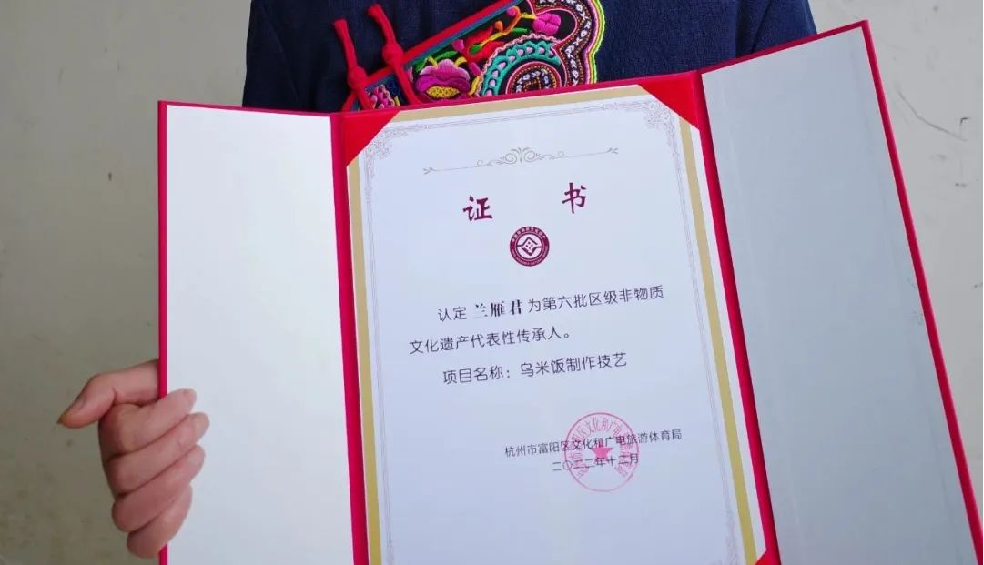 证 书
认定 兰雁君 为第六批区级非物质
文化遗产代表性传承人。
项目名称：乌米饭制作技艺
杭州市富阳区文化和广电旅游体育局
二〇二二年十二月